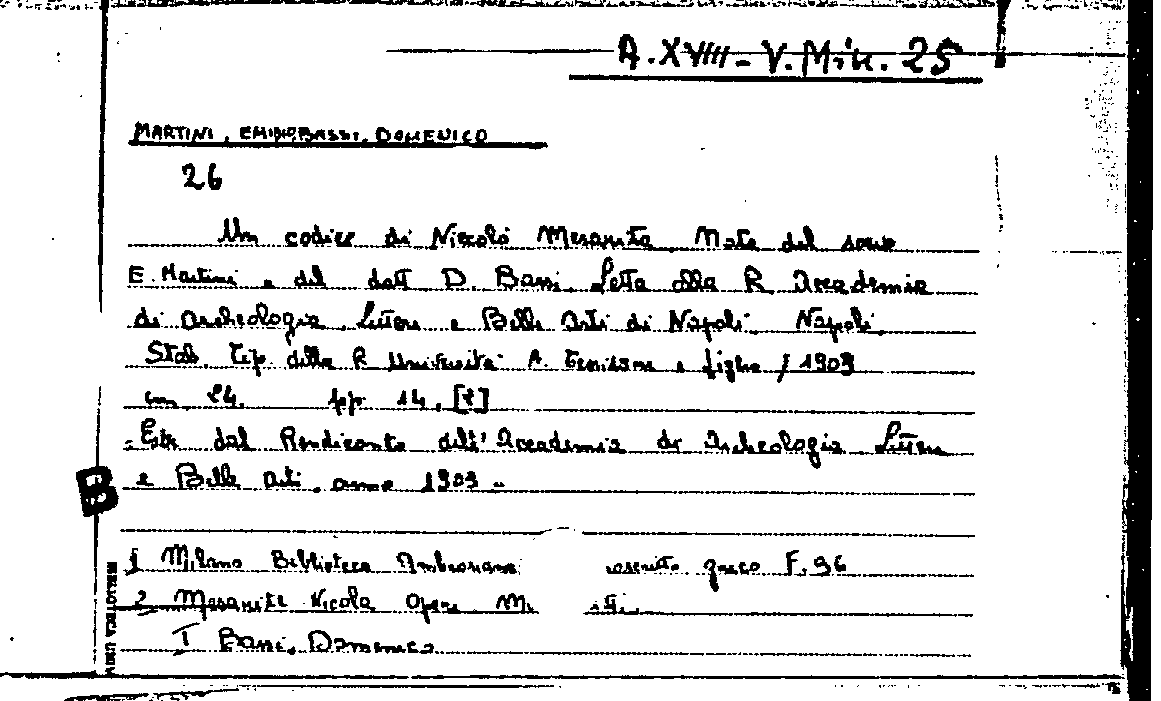 A.XVIII - V. Misc. 25
MARTINI, EMIDIO BASSI, DOMENICO
26
Un codice di Niccolò Mesarita Nota del socio
E. Martini e del dott D. Bassi. Letta alla R Accademia
di Archeologia, Lettere e Belle Arti di Napoli. Napoli,
Stab. Tip. della R Università A. Tessitore e figlio / 1903
cm 24. pp 14, [2]
Estr dal Rendiconto dell'Accademia di Archeologia Lettere
e Belle Arti, anno 1903
1 Milano Biblioteca Ambrosiana oscritto greco F. 96
2 Mesarite Nicola Opere M
I Bassi, Domenico
BIBLIOTECA UNIV